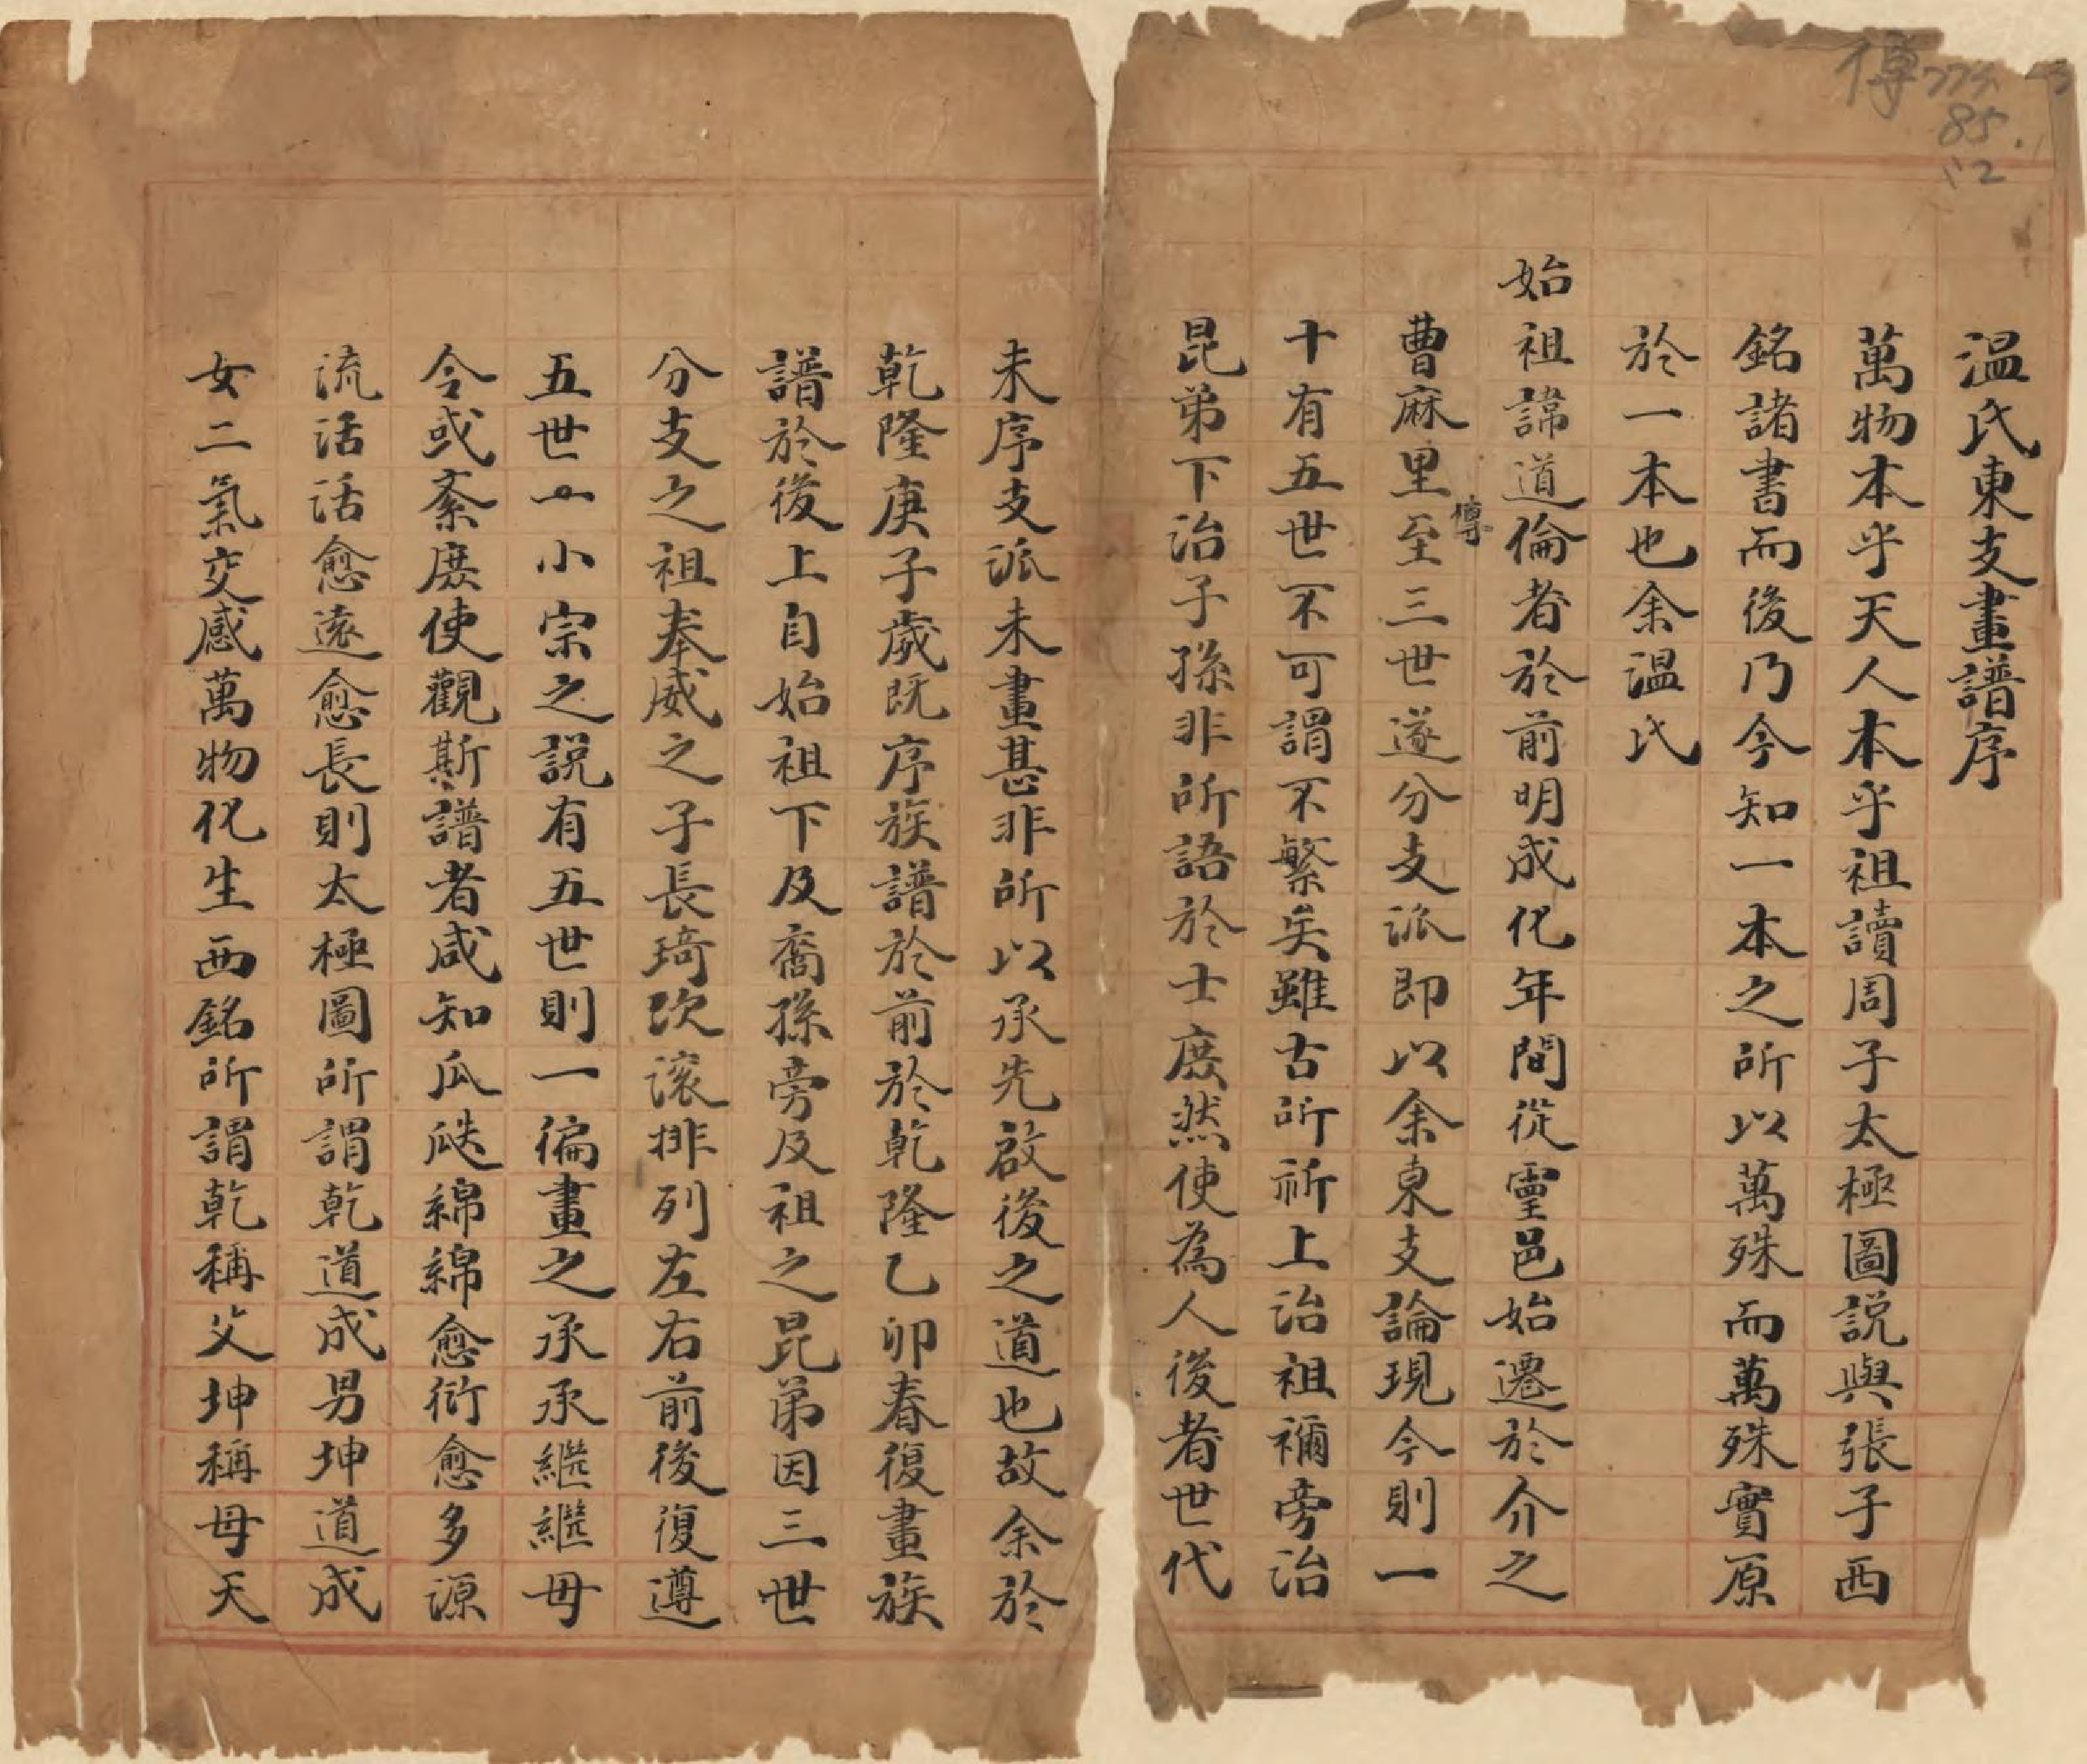 傳
85.
12
溫氏東支畫譜序
萬物本乎天人本乎祖讀周子太極圖説與張子西
銘諸書而後乃今知一本之所以萬殊而萬殊實原
於一本也余溫氏
始祖諱道倫者於前明成化年間從靈邑始遷於介之
曹麻里至傳三世遂分支派即以余東支論現今則一
十有五世不可謂不繁矣雖古所祈上治祖禰旁治
昆弟下治子孫非所語於士庶然使為人後者世代
未序支派未畫甚非所以承先啟後之道也故余於
乾隆庚子歲既序族譜於前於乾隆乙卯春復畫族
譜於後上自始祖下及裔孫旁及祖之昆弟因三世
分支之祖奉威之子長琦次滾排列左右前後復遵
五世一小宗之説有五世則一徧畫之承承繼繼毋
令或紊庶使觀斯譜者咸知瓜瓞綿綿愈衍愈多源
流活活愈遠愈長則太極圖所謂乾道成男坤道成
女二氣交感萬物化生西銘所謂乾稱父坤稱母天